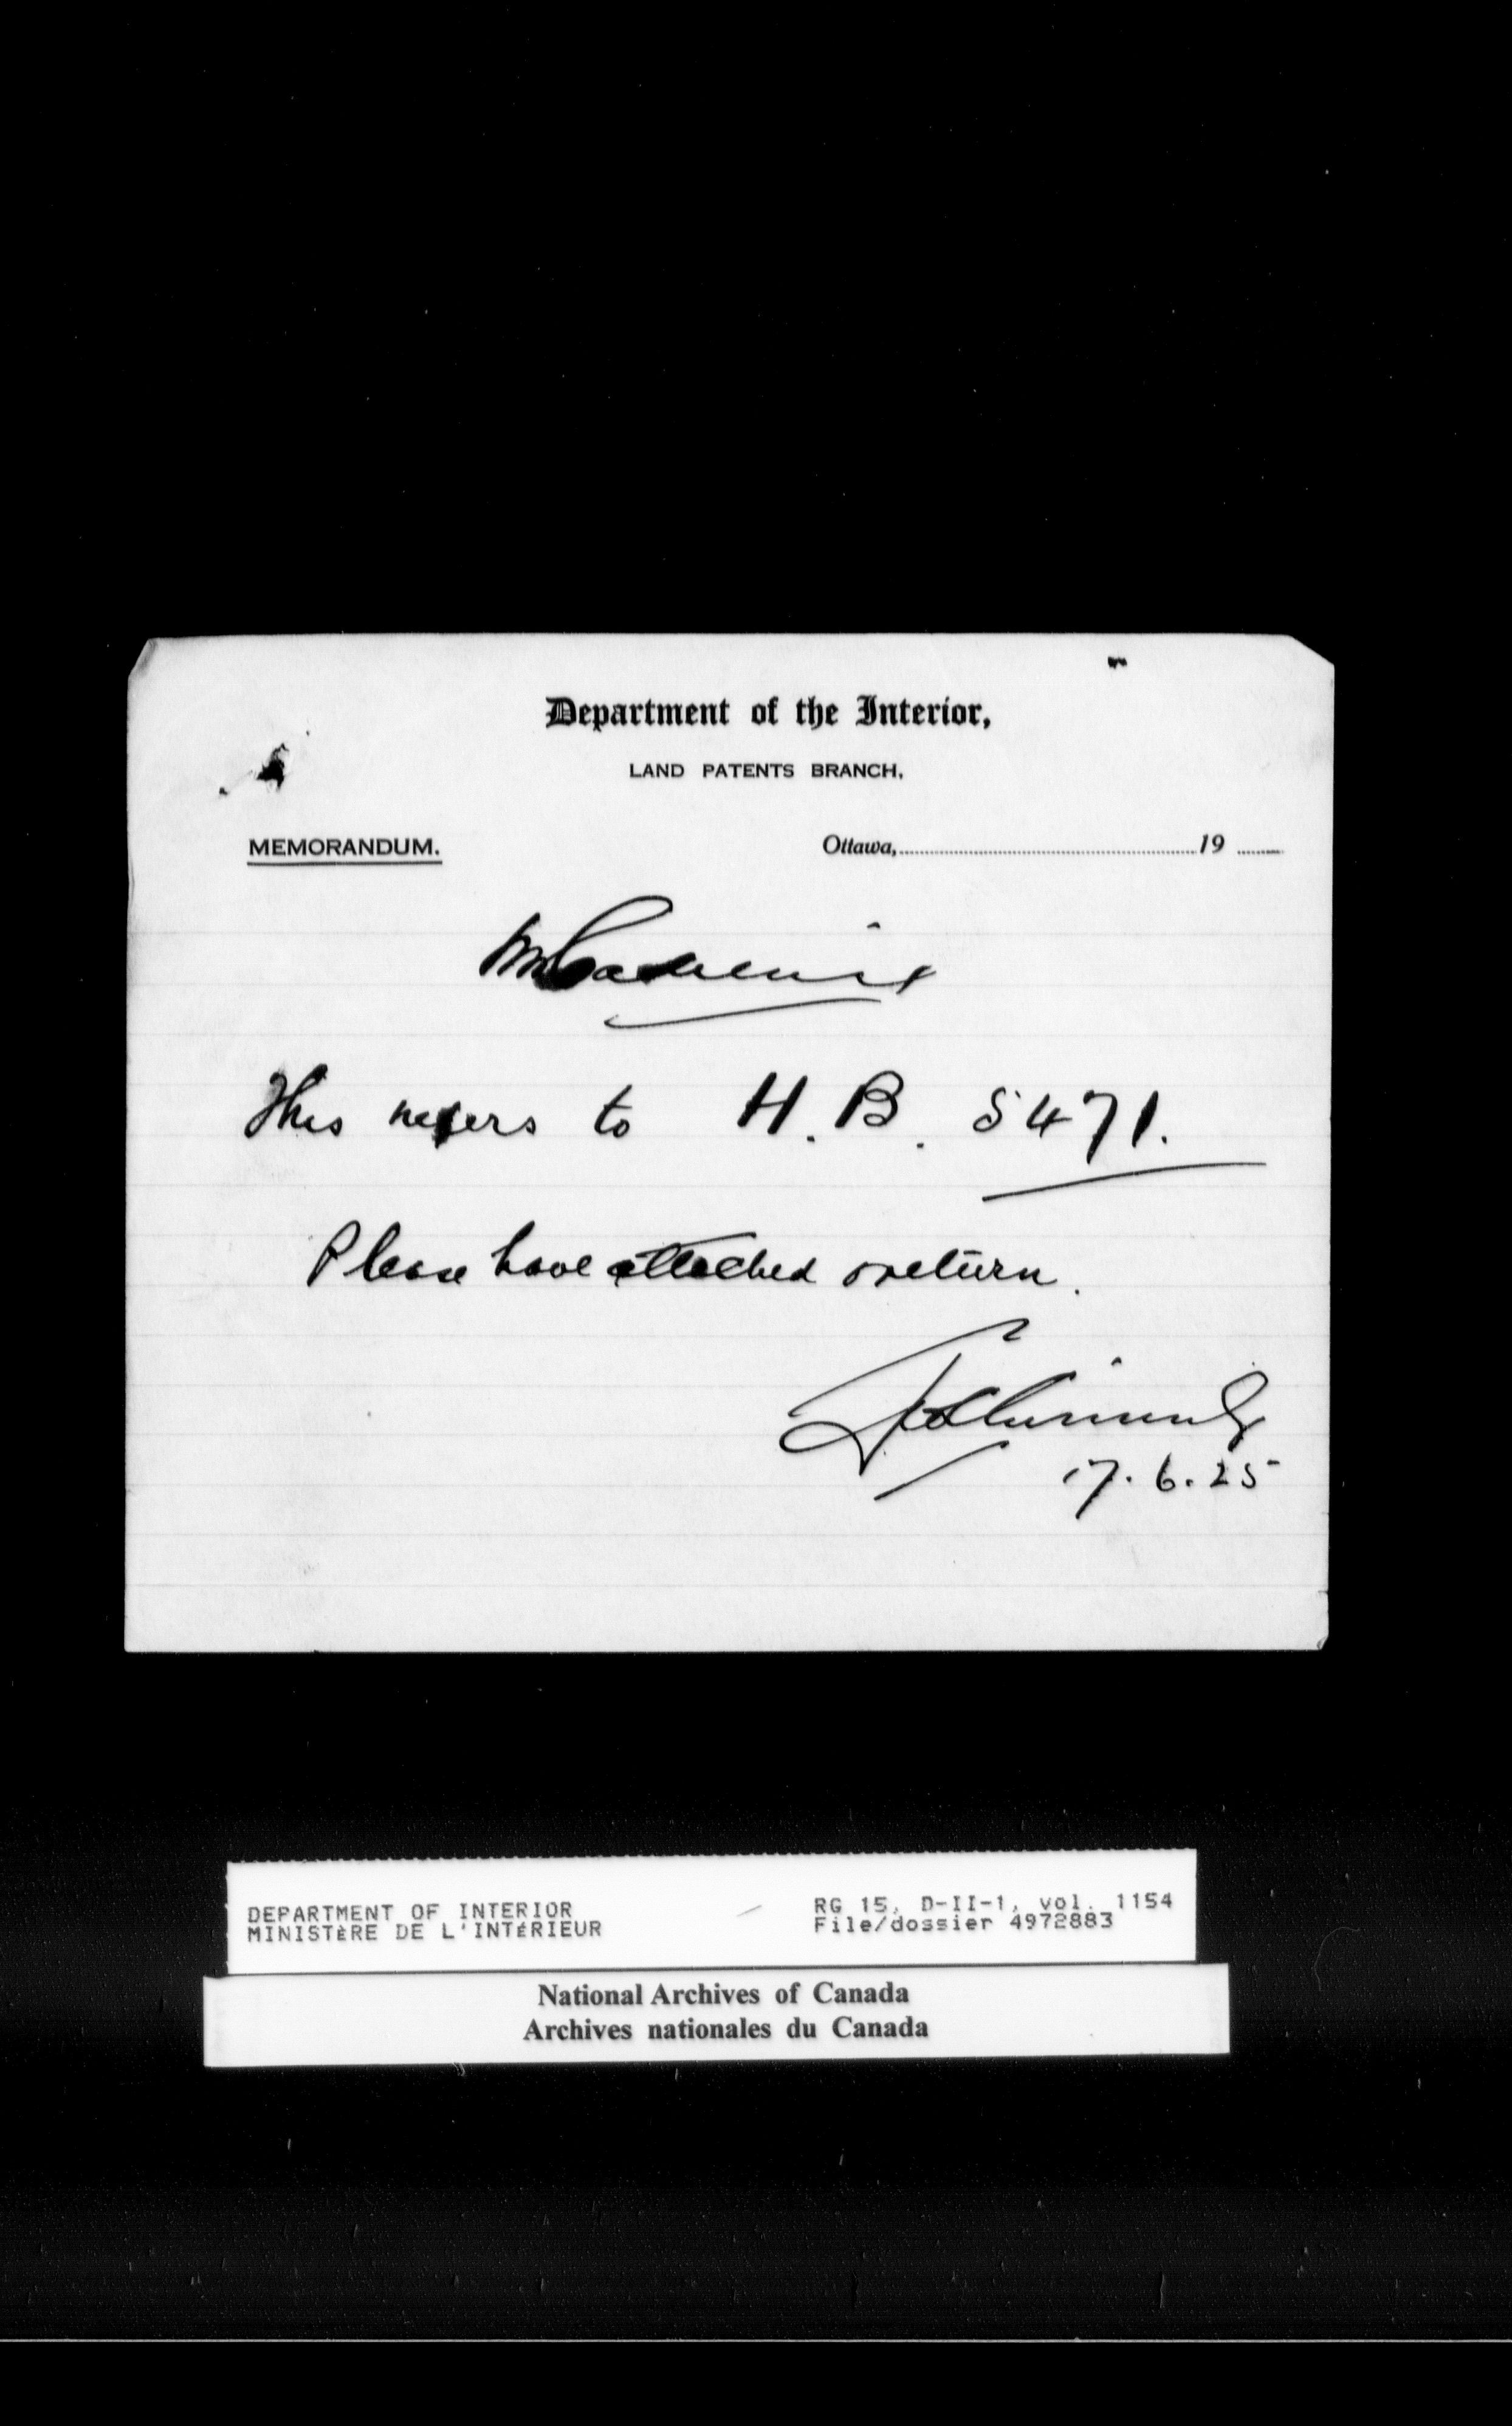 Department of the Interior,
LAND PATENTS BRANCH.
MEMORANDUM.
Ottawa, 19
Mr
This refers to H. B. 5471.
Please have attached & return.
17. 6. 25
DEPARTMENT OF INTERIOR
MINISTÈRE DE L'INTÉRIEUR
RG 15, D-II-1, vol. 1154
File/dossier 4972883
National Archives of Canada
Archives nationales du Canada